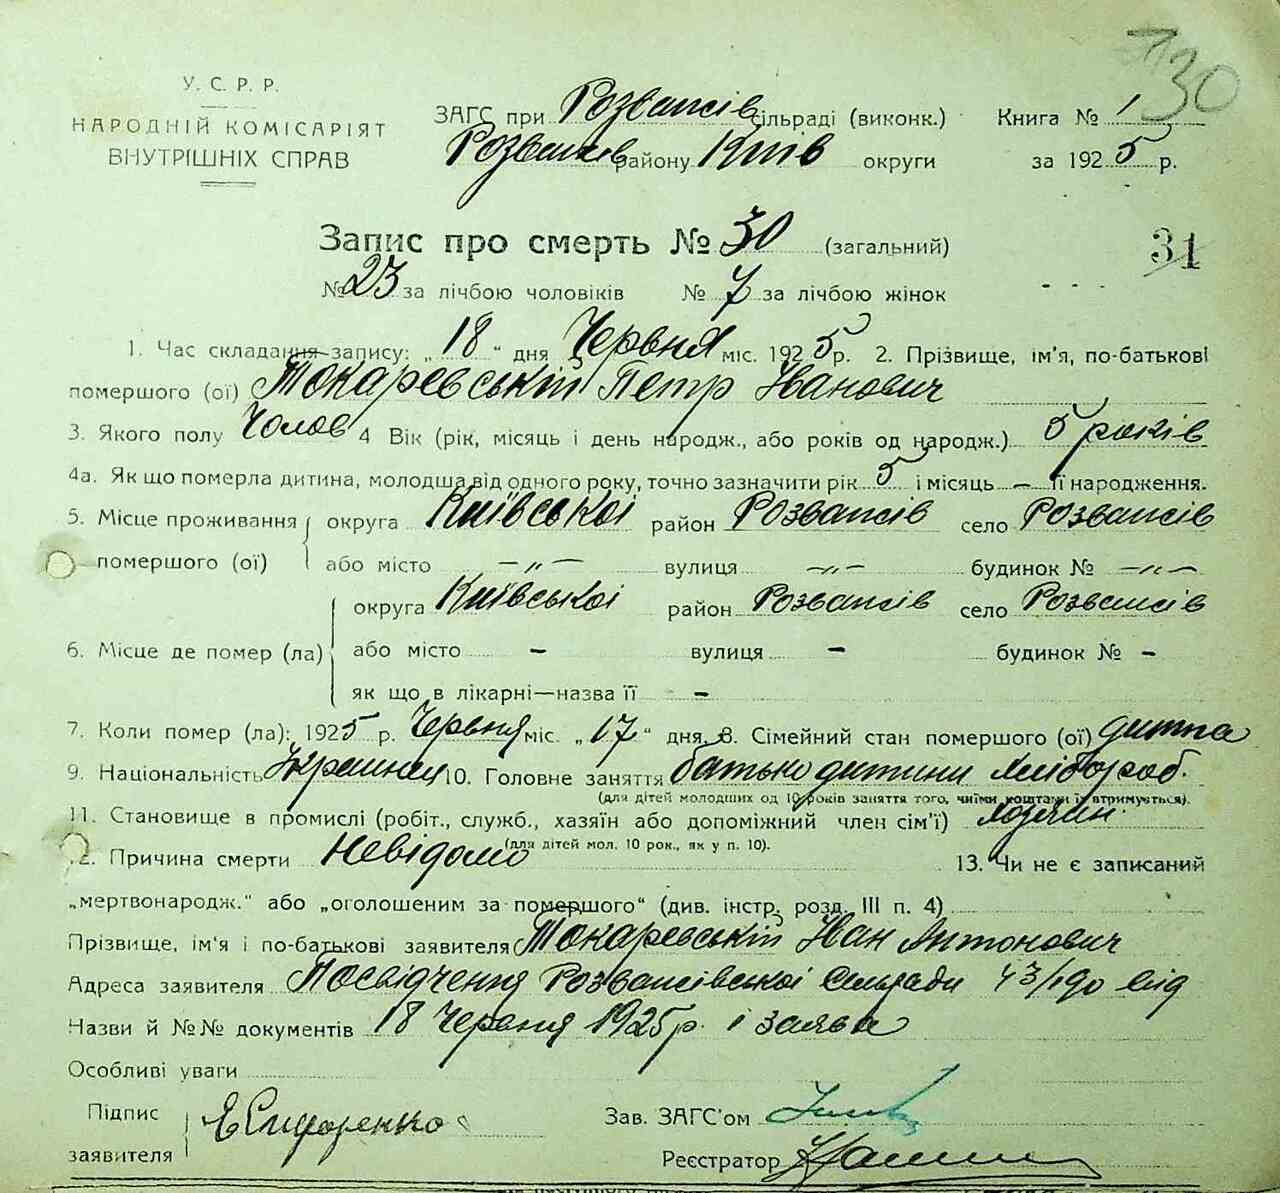 130
У. С. Р. Р.
НАРОДНІЙ КОМІСАРІЯТ
ВНУТРІШНІХ СПРАВ
ЗАГС при Розважів сільраді (виконк.) Книга № 1
Розважів району Київ округи за 1925 р.
Запис про смерть № 30 (загальний)
31
№ 23 за лічбою чоловіків № 7 за лічбою жінок
1. Час складання запису: „18“ дня Червня міс. 1925 р. 2. Прізвище, ім'я, по-батькові
помершого (ої) Токаревській Петр Іванович
3. Якого полу Чолов 4 Вік (рік, місяць і день народж., або років од народж.) 5 років
4а. Як що померла дитина, молодша від одного року, точно зазначити рік 5 і місяць – її народження.
5. Місце проживання округа Київської район Розважів село Розважів
помершого (ої) або місто –„– вулиця –„– будинок № –„–
округа Київської район Розважів село Розважів
6. Місце де помер (ла) або місто – вулиця – будинок № –
як що в лікарні—назва її –
7. Коли помер (ла): 1925 р. Червня міс. „17“ дня. 8. Сімейний стан помершого (ої) дитина
9. Національність Українец 10. Головне заняття батько дитини хлібороб.
(для дітей молодших од 10 років заняття того, чиїми коштами їх втримується).
11. Становище в промислі (робіт., служб., хазяїн або допоміжний член сім'ї) хозяин.
(для дітей мол. 10 рок., як у п. 10).
12. Причина смерти Невідомо 13. Чи не є записаний
„мертвонародж.“ або „оголошеним за помершого“ (див. інстр. розд. III п. 4)
Прізвище, ім'я і по-батькові заявителя Токаревській Иван Антонович
Адреса заявителя Посвідчення Розважівської Сільради 43/190 від
Назви й №№ документів 18 Червня 1925 р. і заява
Особливі уваги
Підпис
заявителя Е Сидоренко
Зав. ЗАГС'ом
Реєстратор